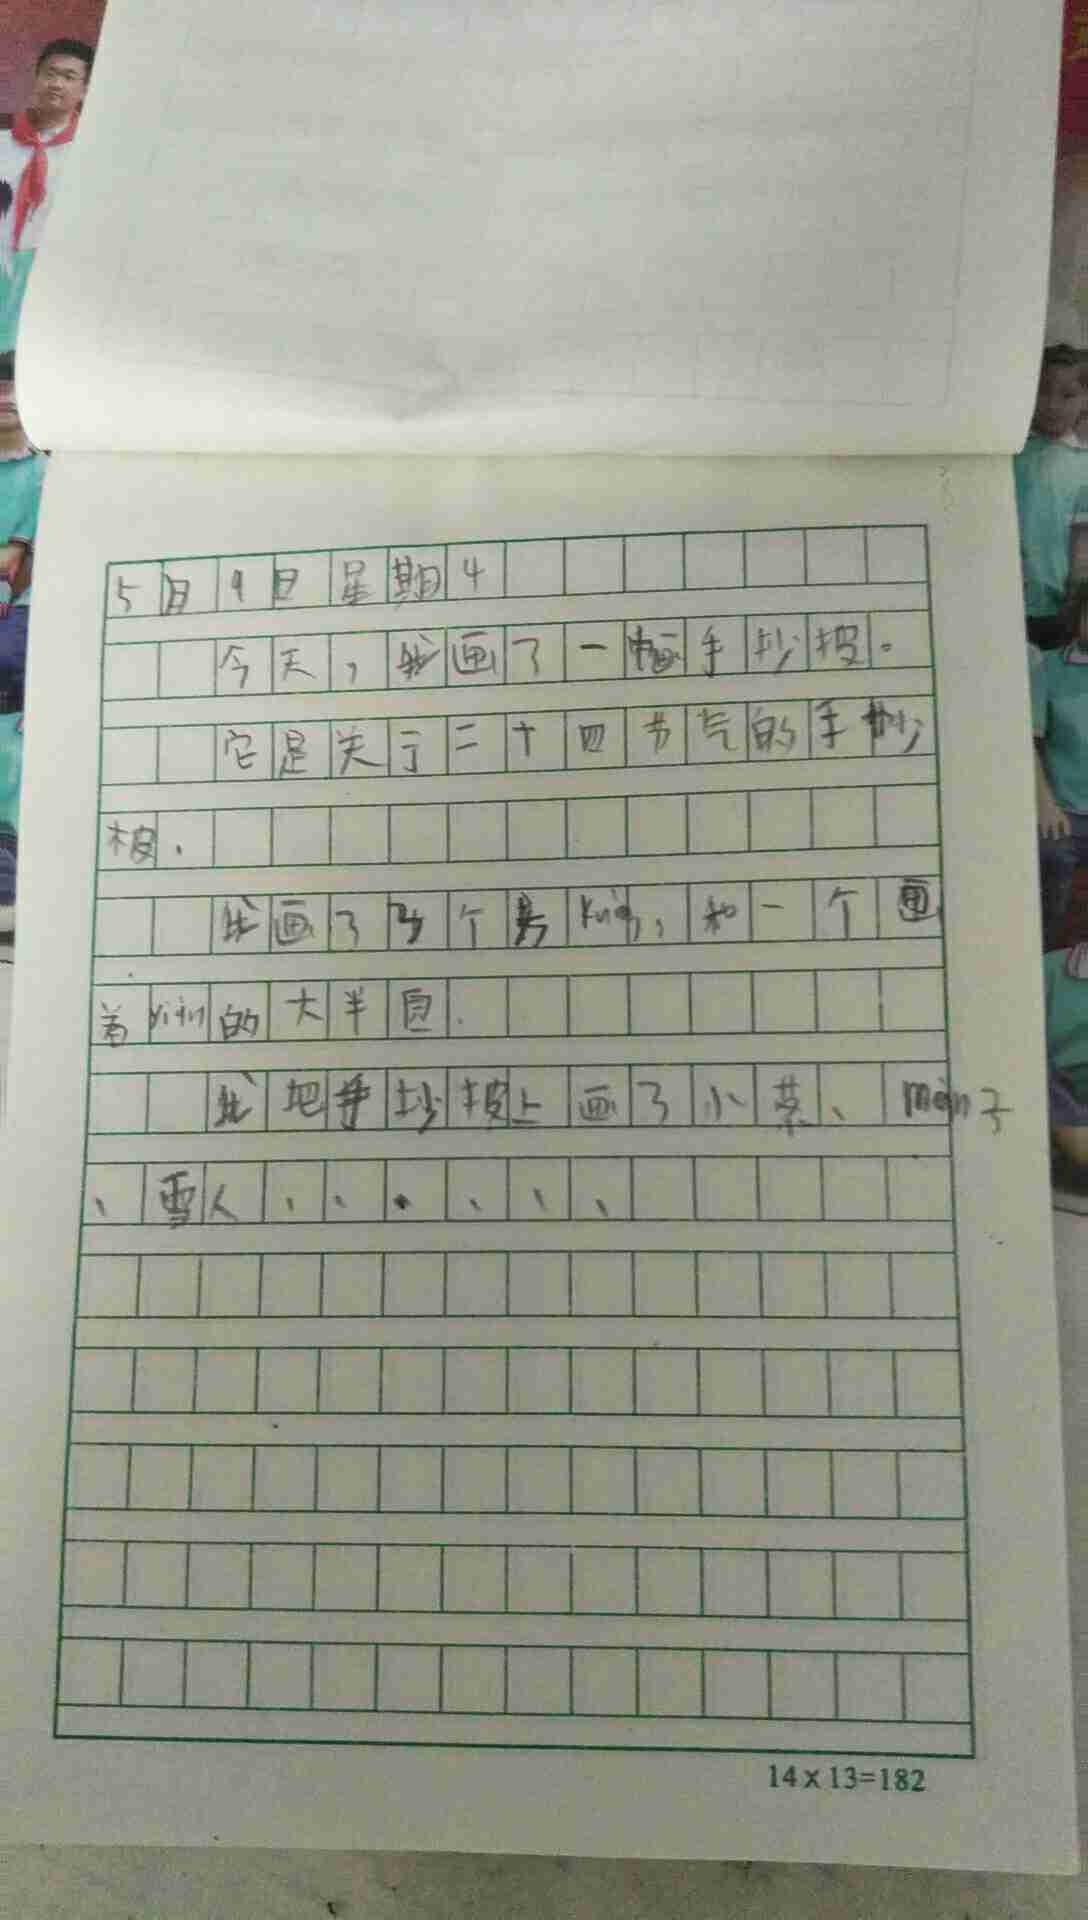 5月9日星期4
今天，我画了一幅手抄披。
它是关于二十四节气的手抄
披.
我画了3个方Kuàng，和一个画
着yuán的大半圆.
我把手抄披上画了小菜、miàn子
、雪人、、.、、、
14×13=182